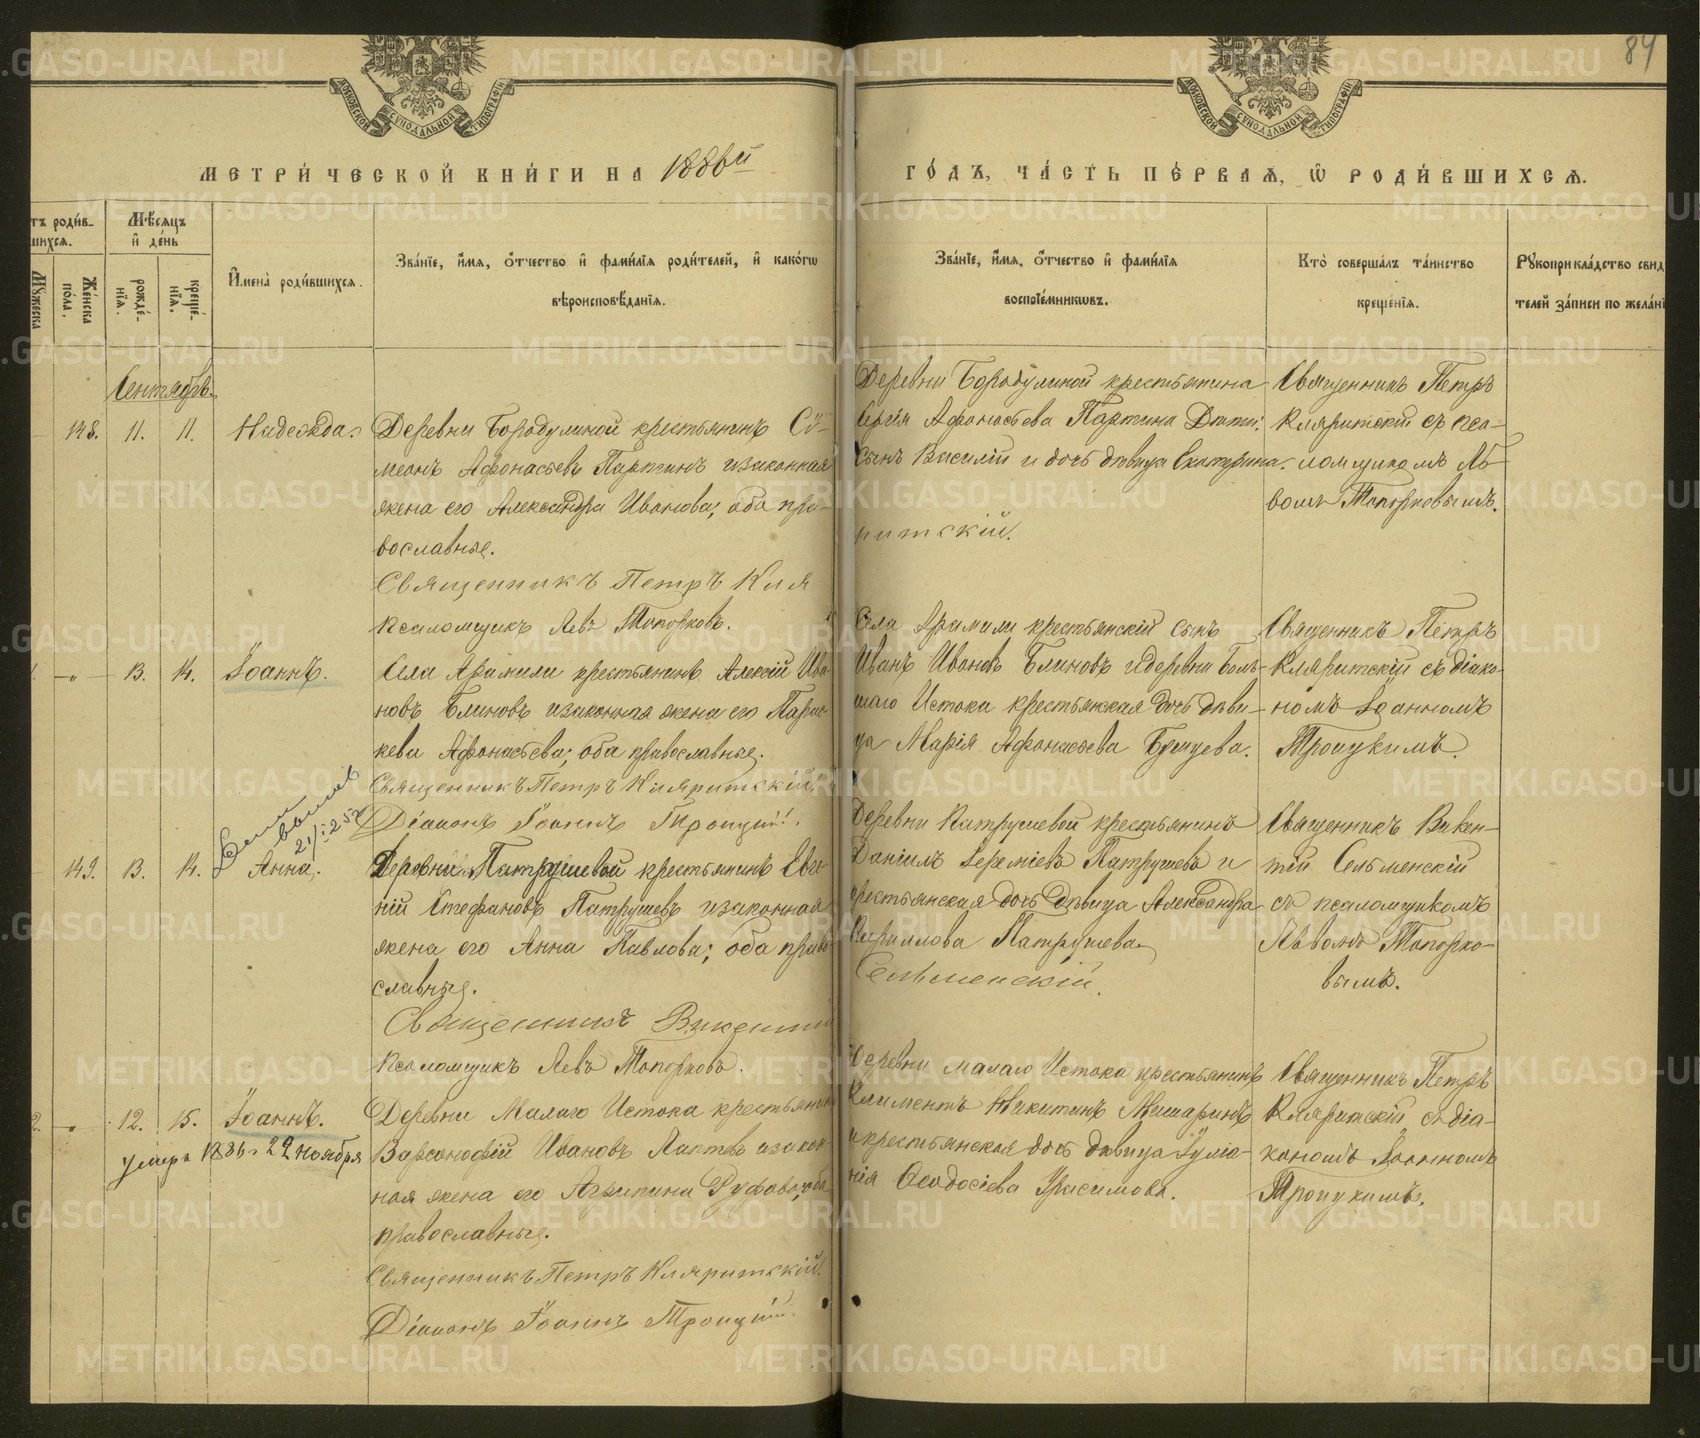 84
МОСКОВСКОЙ СѴНОДАЛЬНОЙ ТИПОГРАФІИ
МОСКОВСКОЙ СѴНОДАЛЬНОЙ ТИПОГРАФІИ
МЕТРИ́ЧЕСКОЙ КНИ́ГИ НА 1886й
ГО́ДЪ, ЧА́СТЬ ПЕ́РВАЯ, Ѿ РОДИ́ВШИХСЯ.
тъ роди́в-
шихся.
Мꙋжеска
Же́нска
по́ла.
Мѣ́сяцъ
и҆ де́нь
рожде́-
нїя.
креще́-
нїя.
И҆мена̀ роди́вшихся.
Зва́нїе, и҆́мя, ѻ҆́тчество и҆ фами́лїя роди́телей, и҆ како́гѡ
вѣроисповѣ́данїя.
Зва́нїе, и҆́мя, ѻ҆́тчество и҆ фами́лїя
воспрїе́мникѡвъ.
Кто̀ соверша́лъ та́инство
креще́нїя.
Рꙋкоприкла́дство свид
телей за́писи по жела́нї
Сентябрь.
148. 11. 11. Надежда.
Деревни Бородулиной крестьянинъ Сѵ-
меонъ Афонасьевъ Партинъ изаконная
жена его Александра Иванова; оба пра-
вославные.
Священникъ Петръ Кля
ритскій.
Псаломщикъ Левъ Топорковъ.
Деревни Бородулиной крестьянина
Сергія Афонасьева Партина Дѣти:
сынъ Василій и дочь дѣвица Екатерина.
Священникъ Петръ
Кляритскій съ пса-
ломщикомъ Ль-
вомъ Топорковымъ.
13. 14. Іоаннъ.
Села Арамили крестьянинъ Алексій Ива
новъ Блиновъ изаконная жена его Парас-
кева Афонасьева; оба православные.
Священникъ Петръ Кляритскій.
Діаконъ Іоаннъ Троицкій.
Села Арамили крестьянскій сынъ
Иванъ Ивановъ Блиновъ и деревни Боль-
шаго Истока крестьянская дочь дѣви-
ца Марія Афонасьева
Священникъ Петръ
Кляритскій съ діако-
номъ Іоанномъ
Троицкимъ.
149. 13. 14. Анна.
Деревни Патрушевой крестьянинъ Евге-
ній Стефановъ Патрушевъ изаконная
жена его Анна Павлова; оба право
славные.
Священникъ Викентій
Сельменскій.
Псаломщикъ Левъ Топорковъ.
Деревни Патрушевой крестьянинъ
Даніилъ Іереміевъ Патрушевъ и
крестьянская дочь дѣвица Александра
Кириллова Патрушева.
Священникъ Викен-
тій Сельменскій
съ псаломщикомъ
Львомъ Топорко-
вымъ.
2. 12. 15. Іоаннъ.
умеръ 1886 г. 22 ноября
Деревни Малаго Истока крестьянинъ
Варсонофій Ивановъ Лаптевъ изакон
ная жена его Агрипина Руфова; оба
православные.
Священникъ Петръ Кляритскій.
Діаконъ Іоаннъ Троицкій.
Деревни малаго Истока крестьянинъ
Климентъ Никитинъ Мишаринъ
и крестьянская дочь дѣвица Іуліа-
нія Ѳеодосіева
Священникъ Петръ
Кляритскій съ діа-
кономъ Іоанномъ
Троицкимъ.
METRIKI.GASO-URAL.RU